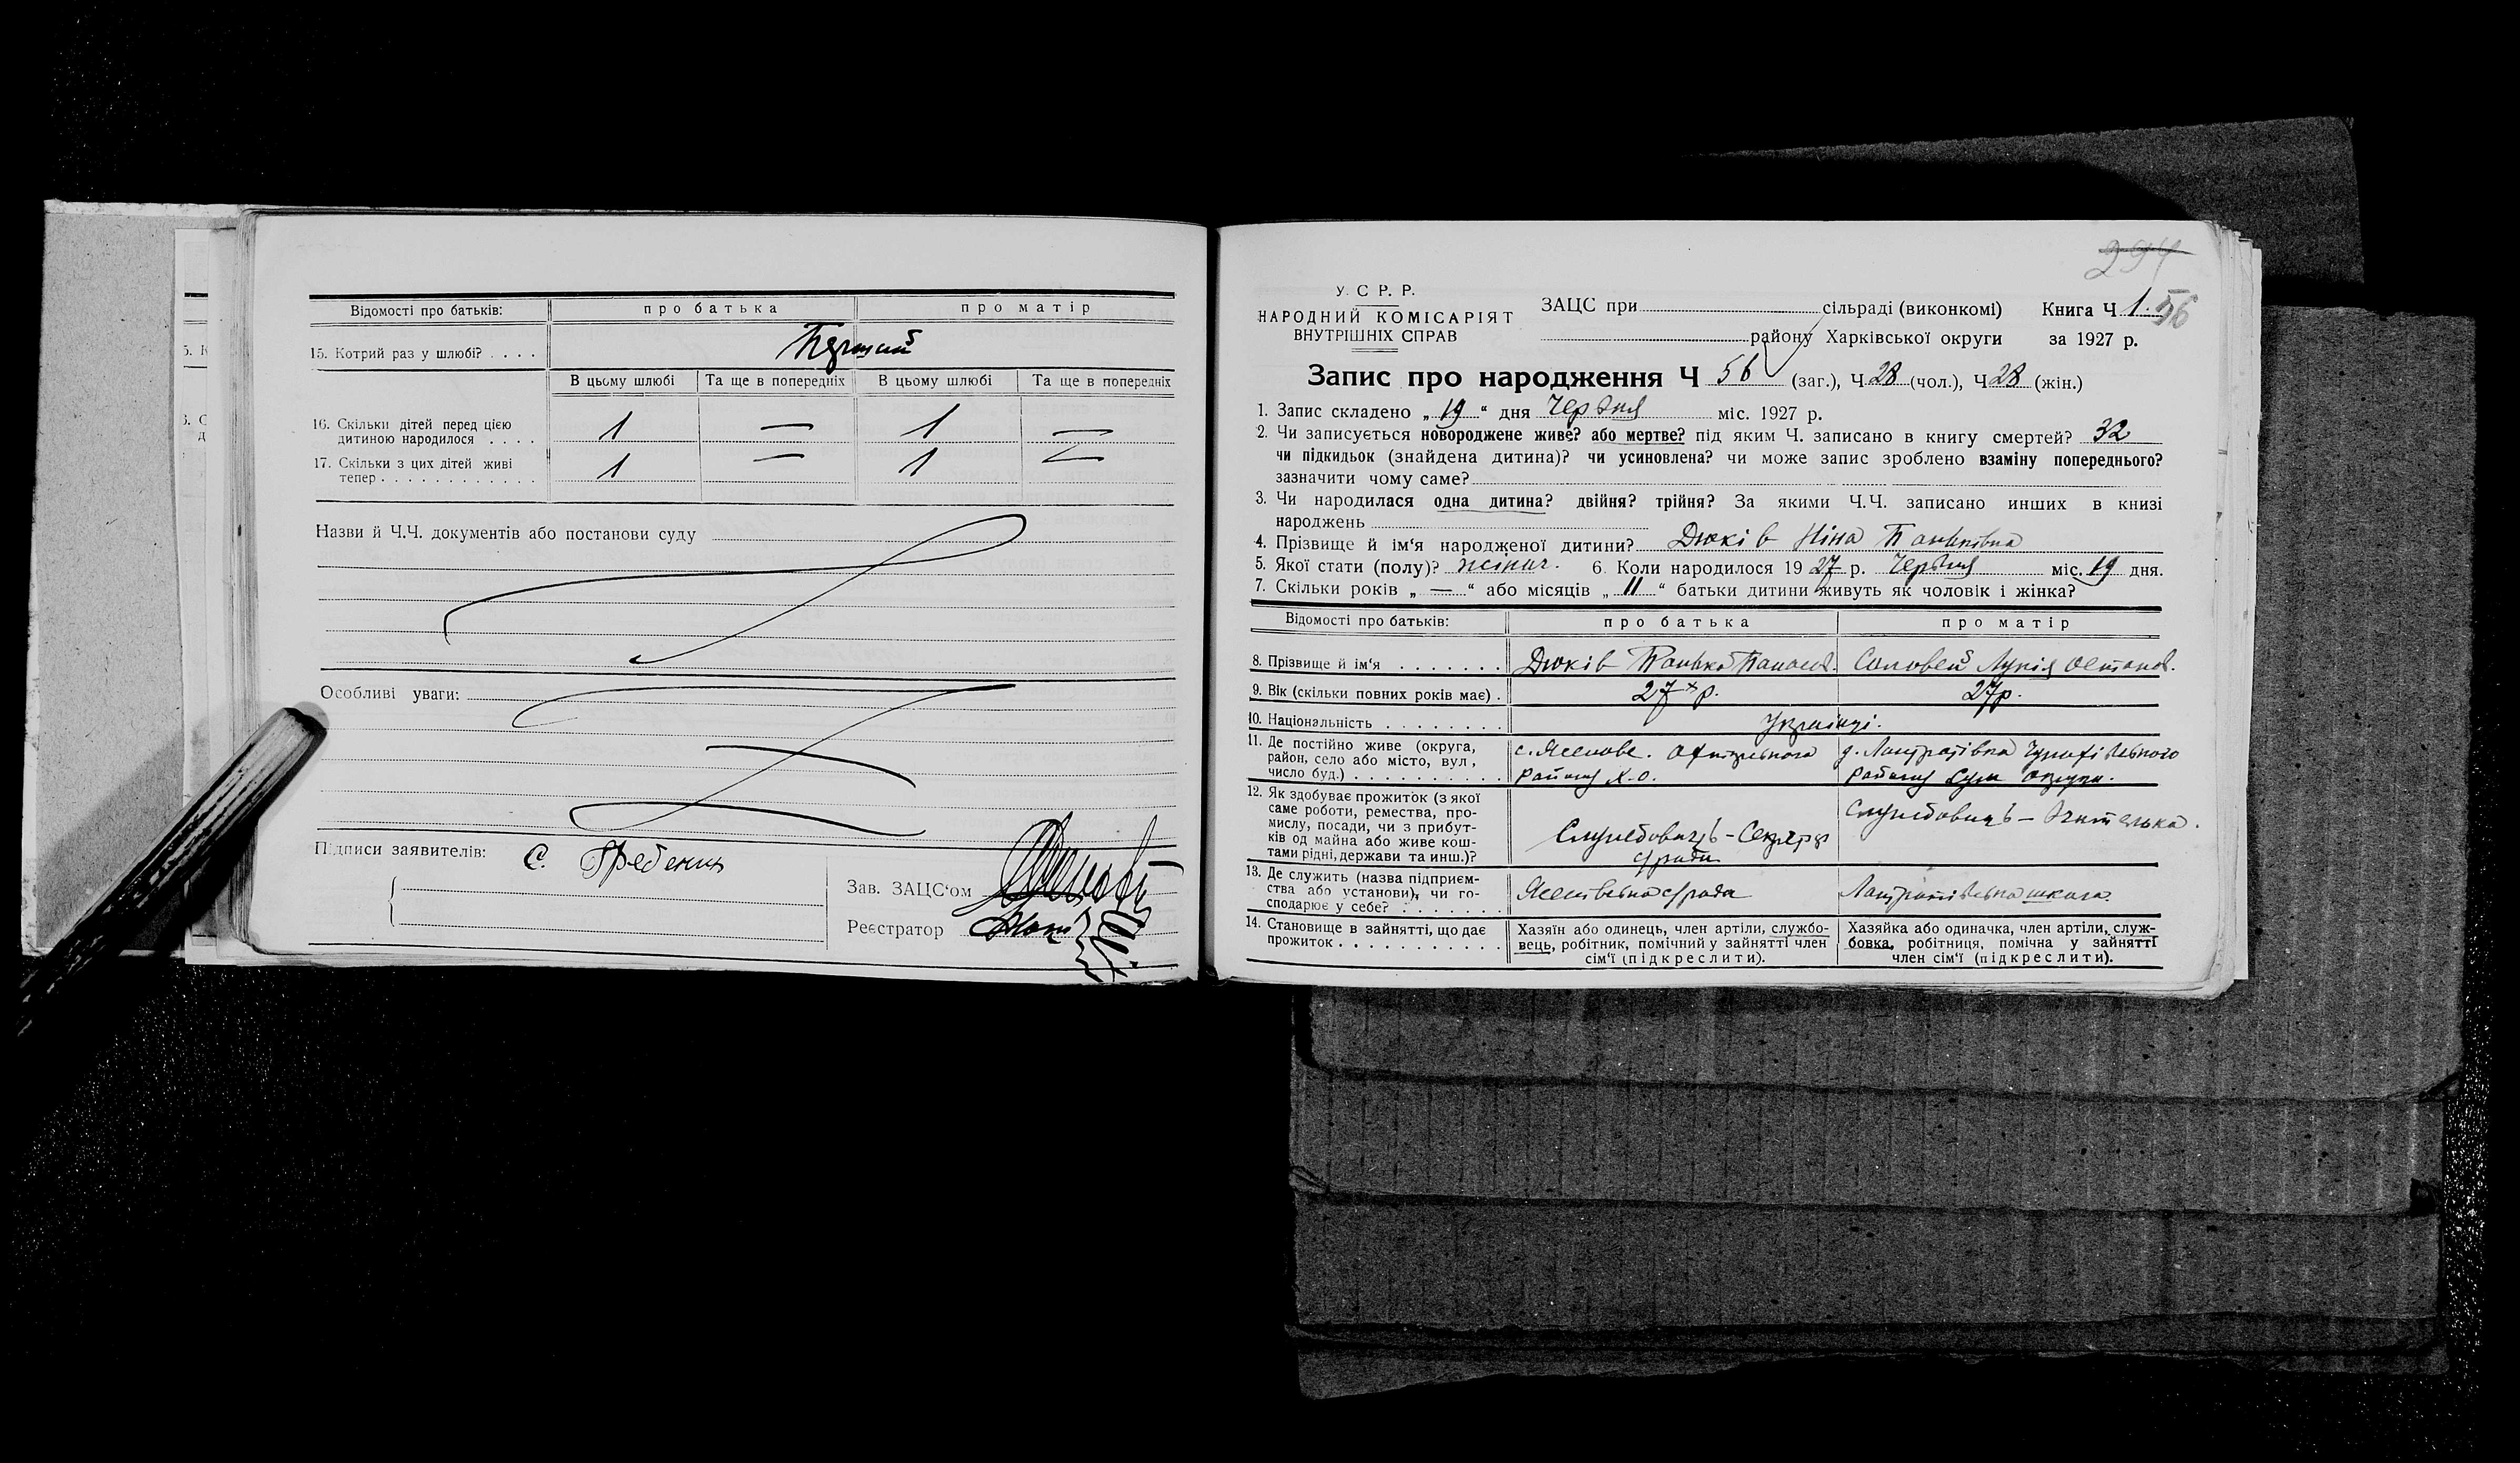 Відомості про батьків: про батька про матір
15. Котрий раз у шлюбі? . . . . Перший
В цьому шлюбі Та ще в попередніх В цьому шлюбі Та ще в попередніх
16. Скільки дітей перед цією
дитиною народилося . . . . 1 — 1 —
17. Скільки з цих дітей живі
тепер . . . . . . . . . . . . 1 — 1 —
Назви й Ч.Ч. документів або постанови суду
Особливі уваги:
Підписи заявителів: С. Гребеник
Зав. ЗАЦС'ом
Реєстратор
294
У. С Р. Р.
НАРОДНИЙ КОМІСАРІЯТ
ВНУТРІШНІХ СПРАВ
ЗАЦС при сільраді (виконкомі) Книга Ч 1. 56
району Харківської округи за 1927 р.
Запис про народження Ч 56 (заг.), Ч 28 (чол.), Ч 28 (жін.)
1. Запис складено „ 19 “ дня Червня міс. 1927 р.
2. Чи записується новороджене живе? або мертве? під яким Ч. записано в книгу смертей? 32
чи підкидьок (знайдена дитина)? чи усиновлена? чи може запис зроблено взаміну попереднього?
зазначити чому саме?
3. Чи народилася одна дитина? двійня? трійня? За якими Ч.Ч. записано инших в книзі
народжень
4. Прізвище й ім'я народженої дитини? Дюків Ніна Паньківна
5. Якої стати (полу)? жіноч. 6. Коли народилося 19 27 р. Червня міс. 19 дня.
7. Скільки років „ — “ або місяців „ 11 “ батьки дитини живуть як чоловік і жінка?
Відомості про батьків: про батька про матір
8. Прізвище й ім'я . . . . . . . Дюків Панько Панасов. Соловей Лукія Остапов.
9. Вік (скільки повних років має) . 27 р. 27 р.
10. Національність . . . . . . . . Українці.
11. Де постійно живе (округа,
район, село або місто, вул,
число буд.) . . . . . . . . . . с. Ясенове. Охтирського
району Х.О. району Сум округи.
12. Як здобуває прожиток (з якої
саме роботи, ремества, про-
мислу, посади, чи з прибут-
ків од майна або живе кош-
тами рідні, держави та инш.)? Службовець – Секретр
с/ради Службовець – Вчителька.
13. Де служить (назва підприєм-
ства або установи), чи го-
сподарює у себе? . . . . . . . Ясенівська с/рада школа.
14. Становище в зайнятті, що дає
прожиток . . . . . . . . . . . .
Хазяїн або одинець, член артіли, службо-
вець, робітник, помічний у зайнятті член
сім'ї (підкреслити).
Хазяйка або одиначка, член артіли, служ-
бовка, робітниця, помічна у зайнятті
член сім'ї (підкреслити).